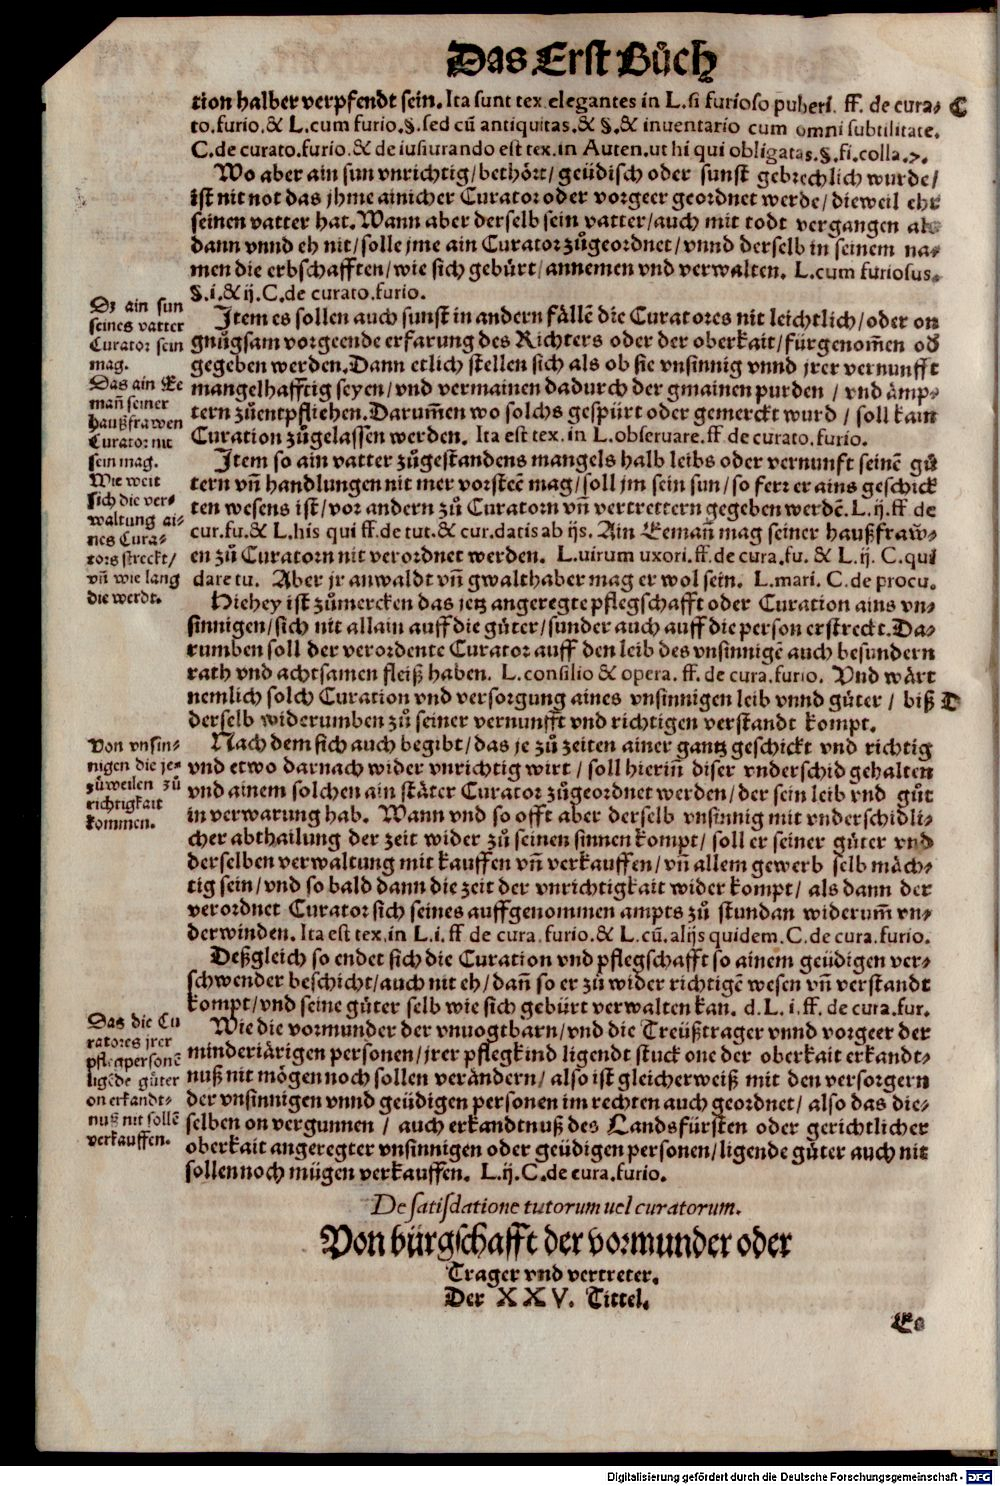 Das Erst Bůch
tion halber verpfendt sein. Ita sunt tex. elegantes in L. si furioso puberi. ff. de cura- C
to. furio. & L. cum furio. §. sed cū antiquitas. & §. & inuentario cum omni subtilitate.
C. de curato. furio. & de iusiurando est tex. in Auten. ut hi qui obligatas. §. fi. colla. 7.
Wo aber ain sun vnrichtig/ bethört/ geüdisch oder sunst gebrechlich wurde/
ist nit not das jhme ainicher Curator oder vorgeer geordnet werde/ dieweil ehr
seinen vatter hat. Wann aber derselb sein vatter/ auch mit todt vergangen als
dann vnnd eh nit/ solle jme ain Curator zůgeordnet/ vnnd derselb in seinem na-
men die erbschafften/ wie sich gebürt/ annemen vnd verwalten. L. cum furiosus.
§. i. & ij. C. de curato. furio.
Dz ain sun
seines vatter
Curator sein
mag.
Das ain Ee
man̄ seiner
haußfrawen
Curator nit
sein mag.
Wie weit
sich die ver-
waltung ai-
nes Cura-
tors streckt/
vn̄ wie lang
die werdt.
Item es sollen auch sunst in andern fällē die Curatores nit leichtlich/ oder on
gnůgsam vorgeende erfarung des Richters oder der oberkait/ fürgenom̄en od̄
gegeben werden. Dann etlich stellen sich als ob sie vnsinnig vnnd jrer vernunfft
mangelhafftig seyen/ vnd vermainen dadurch der gmainen purden / vnd ämp-
tern zůentpfliehen. Darum̄en wo solchs gespürt oder gemerckt wurd / soll kain
Curation zůgelassen werden. Ita est tex. in L. obseruare. ff. de curato. furio.
Item so ain vatter zůgestandens mangels halb leibs oder vernunft seinē gü
tern vn̄ handlungen nit mer vorsteē mag/ soll jm sein sun/ so ferr er ains geschick
ten wesens ist/ vor andern zů Curatorn vn̄ vertrettern gegeben werdē. L. ij. ff. de
cur. fu. & L. his qui ff. de tut. & cur. datis ab ijs. Ain Eeman̄ mag seiner haußfraw̄-
en zů Curatorn nit verordnet werden. L. uirum uxori. ff. de cura. fu. & L. ij. C. qui
dare tu. Aber jr anwaldt vn̄ gwalthaber mag er wol sein. L. mari. C. de procu.
Hiebey ist zůmercken das jetz angeregte pflegschafft oder Curation ains vn-
sinnigen/ sich nit allain auff die güter/ sunder auch auff die person erstreckt. Da-
rumben soll der verordente Curator auff den leib des vnsinnigē auch besundern
rath vnd achtsamen fleiß haben. L. consilio & opera. ff. de cura. furio. Vnd wärt
nemlich solch Curation vnd versorgung aines vnsinnigen leib vnnd güter / biß D
derselb widerumben zů seiner vernunfft vnd richtigen verstandt kompt.
Von vnsin-
nigen die je-
zůweilen zů
richtigkait
kommen.
Nach dem sich auch begibt/ das je zů zeiten ainer gantz geschickt vnd richtig
vnd etwo darnach wider vnrichtig wirt / soll hierin̄ diser vnderschid gehalten
vnd ainem solchen ain stäter Curator zůgeordnet werden/ der sein leib vnd gůt
in verwarung hab. Wann vnd so offt aber derselb vnsinnig mit vnderschidli-
cher abthailung der zeit wider zů seinen sinnen kompt/ soll er seiner güter vnd
derselben verwaltung mit kauffen vn̄ verkauffen/ vn̄ allem gewerb selb mäch-
tig sein/ vnd so bald dann die zeit der vnrichtigkait wider kompt/ als dann der
verordnet Curator sich seines auffgenommen ampts zů stundan widerum̄ vn-
derwinden. Ita est tex. in L. i. ff. de cura. furio. & L. cū. alijs quidem. C. de cura. furio.
Deßgleich so endet sich die Curation vnd pflegschafft so ainem geüdigen ver-
schwender beschicht/ auch nit eh/ dan̄ so er zů wider richtigē wesen vn̄ verstandt
kompt/ vnd seine güter selb wie sich gebürt verwalten kan. d. L. i. ff. de cura. fur.
Das die Cu
ratores jrer
pflegpersonē
ligēde güter
on erkandt-
nuß nit sollē
verkauffen.
Wie die vormunder der vnuogtbarn/ vnd die Treüßtrager vnnd vorgeer der
minderjärigen personen/ jrer pflegkind ligendt stuck one der oberkait erkandt-
nuß nit mögen noch sollen verändern/ also ist gleicherweiß mit den versorgern
der vnsinnigen vnnd geüdigen personen im rechten auch geordnet/ also das die-
selben on vergunnen / auch erkandtnuß des Landsfürsten oder gerichtlicher
oberkait angeregter vnsinnigen oder geüdigen personen/ ligende güter auch nit
sollen noch mügen verkauffen. L. ij. C. de cura. furio.
De satisdatione tutorum uel curatorum.
Von bürgschafft der vormunder oder
Trager vnd vertreter.
Der XXV. Tittel.
Es
Digitalisierung gefördert durch die Deutsche Forschungsgemeinschaft - DFG